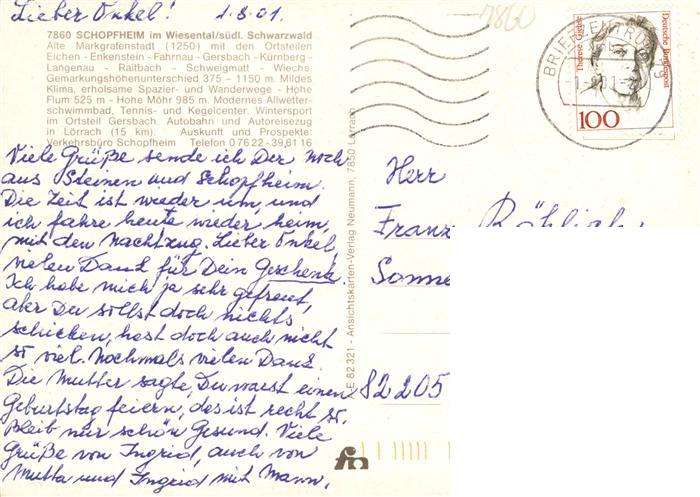 Lieber Onkel! 1.8.01.
7860
7860 SCHOPFHEIM im Wiesental/südl. Schwarzwald
Alte Markgrafenstadt (1250) mit den Ortsteilen
Eichen - Enkenstein - Fahrnau - Gersbach - Kürnberg -
Langenau - Raitbach - Schweigmatt - Wiechs.
Gemarkungshöhenunterschied 375 – 1150 m. Mildes
Klima, erholsame Spazier- und Wanderwege - Hohe
Flum 525 m - Hohe Möhr 985 m. Modernes Allwetter-
schwimmbad, Tennis- und Kegelcenter. Wintersport
im Ortsteil Gersbach. Autobahn und Autoreisezug
in Lörrach (15 km). Auskunft und Prospekte:
Verkehrsbüro Schopfheim Telefon 0 76 22 - 39 61 16
Viele Grüße sende ich Der noch
aus Steinen und Schopfheim.
Die Zeit ist wieder um, und
ich fahre heute wieder heim,
mit den Nachtzug. Lieber Onkel,
vielen Dank für Dein Geschenk.
Ich habe mich ja sehr gefreut,
aber Du sollst doch nichts
schicken, hast doch auch nicht
so viel. Nochmals vielen Dank.
Die Mutter sagte, Du warst einen
Geburtstag feiern, das ist recht so.
Bleib nur schön Gesund. Viele
Grüße von Ingrid, auch von
Mutta und Ingrid mit Mann.
LE 62.321 - Ansichtskarten-Verlag Neumann, 7850 Lörrach
BRIEFZENTRUM 79
Deutsche Bundespost
Therese Giehse
100
Herr
Franz
Sonne
82205